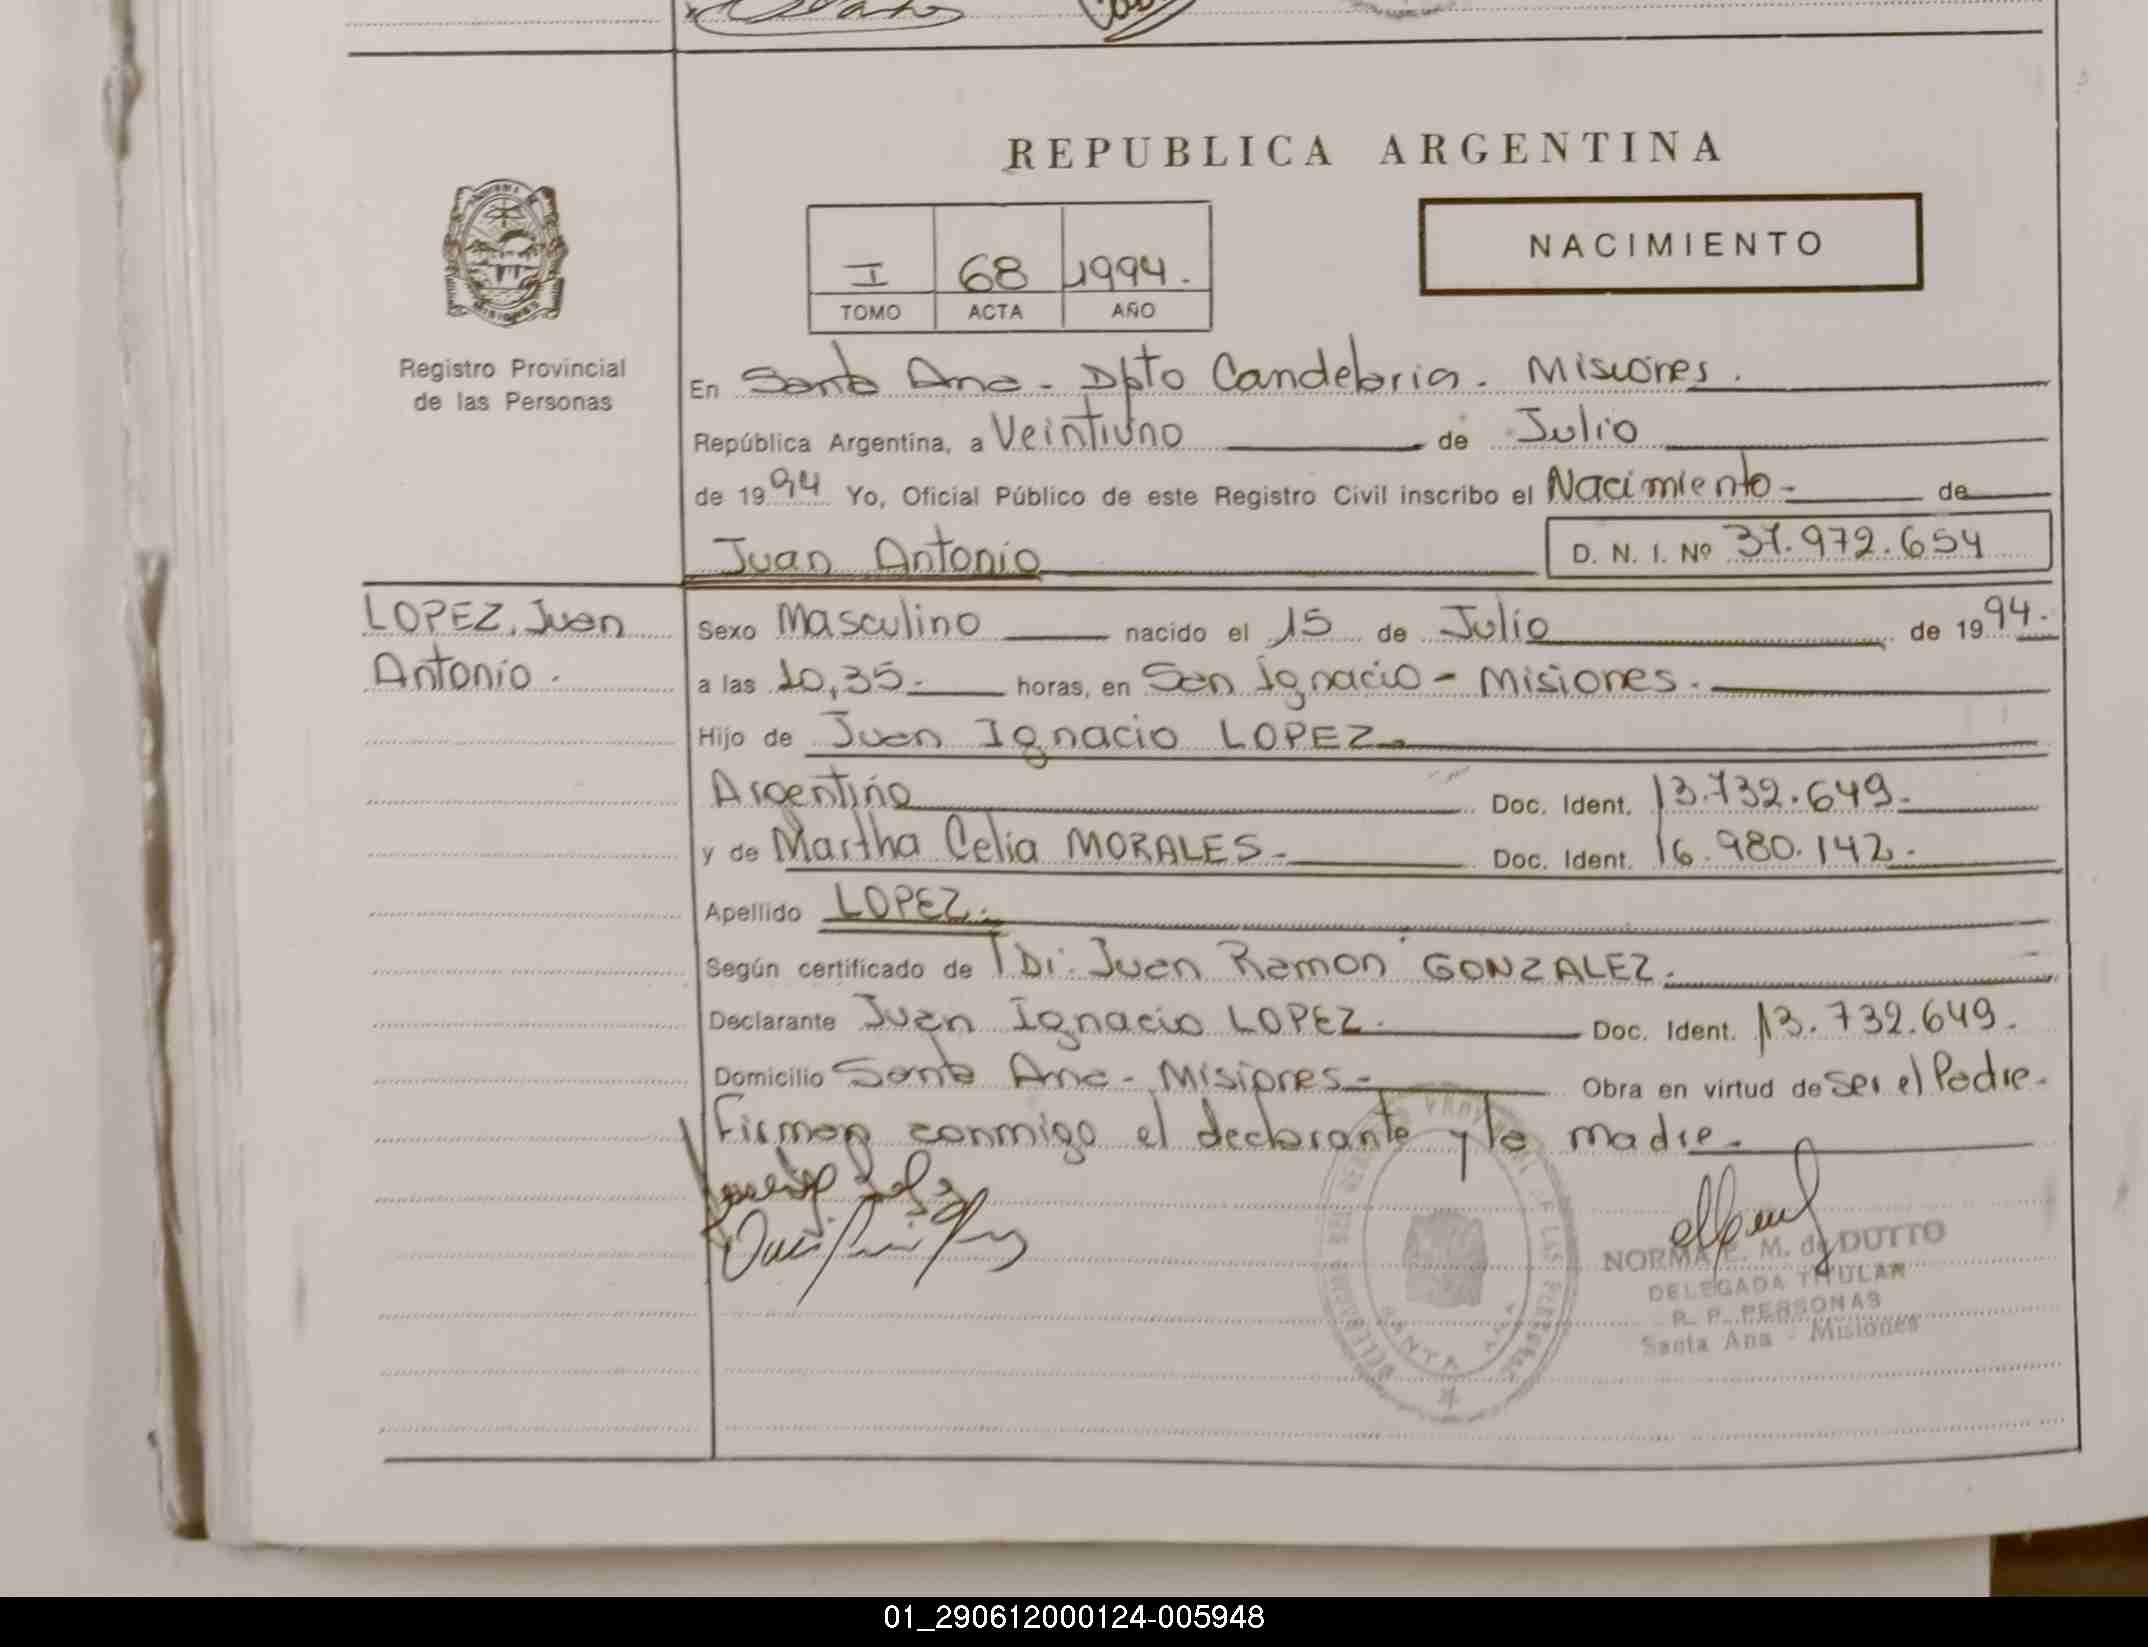 REPUBLICA ARGENTINA
NACIMIENTO
I 68 1994.
TOMO ACTA AÑO
Registro Provincial
de las Personas
En Santa Ana - Dpto Candelaria. Misiones.
República Argentina, a Veintiuno de Julio
de 1994 Yo, Oficial Público de este Registro Civil inscribo el Nacimiento - de
Juan Antonio D. N. I. Nº 37.972.654
LOPEZ, Juan
Antonio.
Sexo Masculino nacido el 15 de Julio de 1994.
a las 10,35. horas, en San Ignacio - Misiones.
Hijo de Juan Ignacio LOPEZ
Argentino Doc. Ident. 13.732.649.
y de Martha Celia MORALES. Doc. Ident. 16.980.142.
Apellido LOPEZ.
Según certificado de Dr. Juan Ramon GONZALEZ.
Declarante Juan Ignacio LOPEZ. Doc. Ident. 13.732.649.
Domicilio Santa Ana - Misiones - Obra en virtud de ser el Padre.
Firman conmigo el declarante y la madre.
NORMA E. M. de DUTTO
DELEGADA TITULAR
R. P. PERSONAS
Santa Ana - Misiones
SANTA ANA
01_290612000124-005948